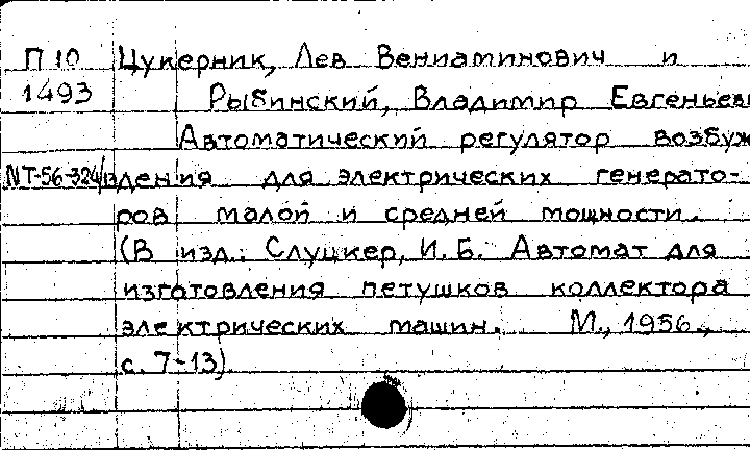 П 10 Цукерник, Лев Вениаминович и
1493 Рыбинский, Владимир Евгеньев
Автоматический регулятор возбуж
NT-56-324/13 дения для электрических генерато-
ров малой и средней мощности.
(В изд.: Слуцкер, И.Б. Автомат для
изготовления петушков коллектора
электрических машин. М., 1956.,
с. 7-13).